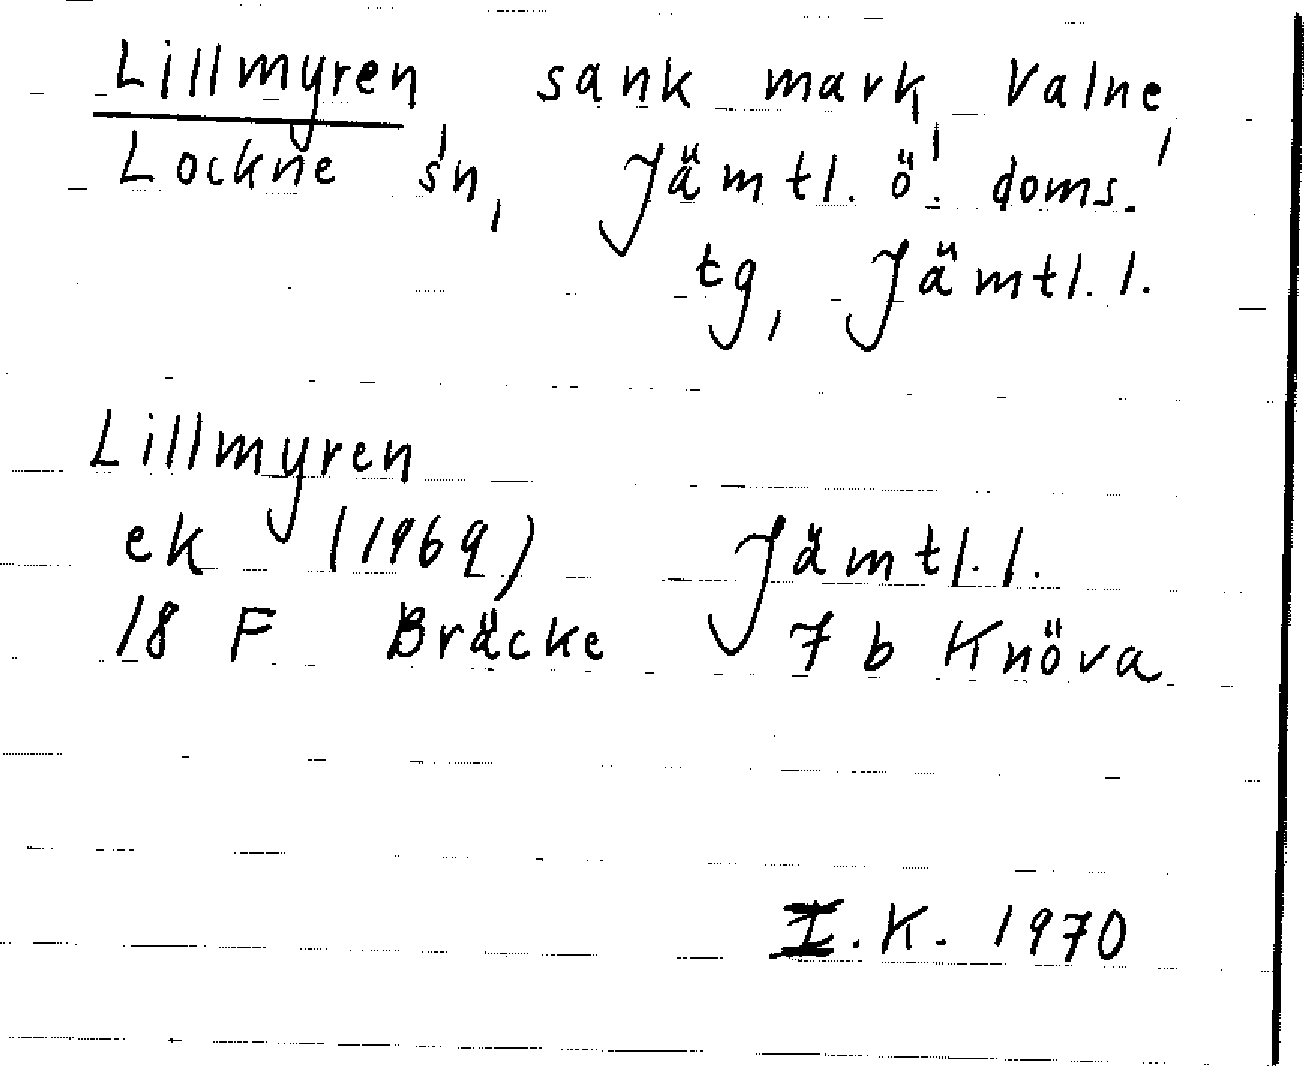 Lillmyren, sank mark, Valne,
Lockne sn, Jämtl. ö. doms.
tg, Jämtl. l.
Lillmyren
ek (1969) Jämtl. l.
18 F Bräcke 7 b Knöva
I.K. 1970